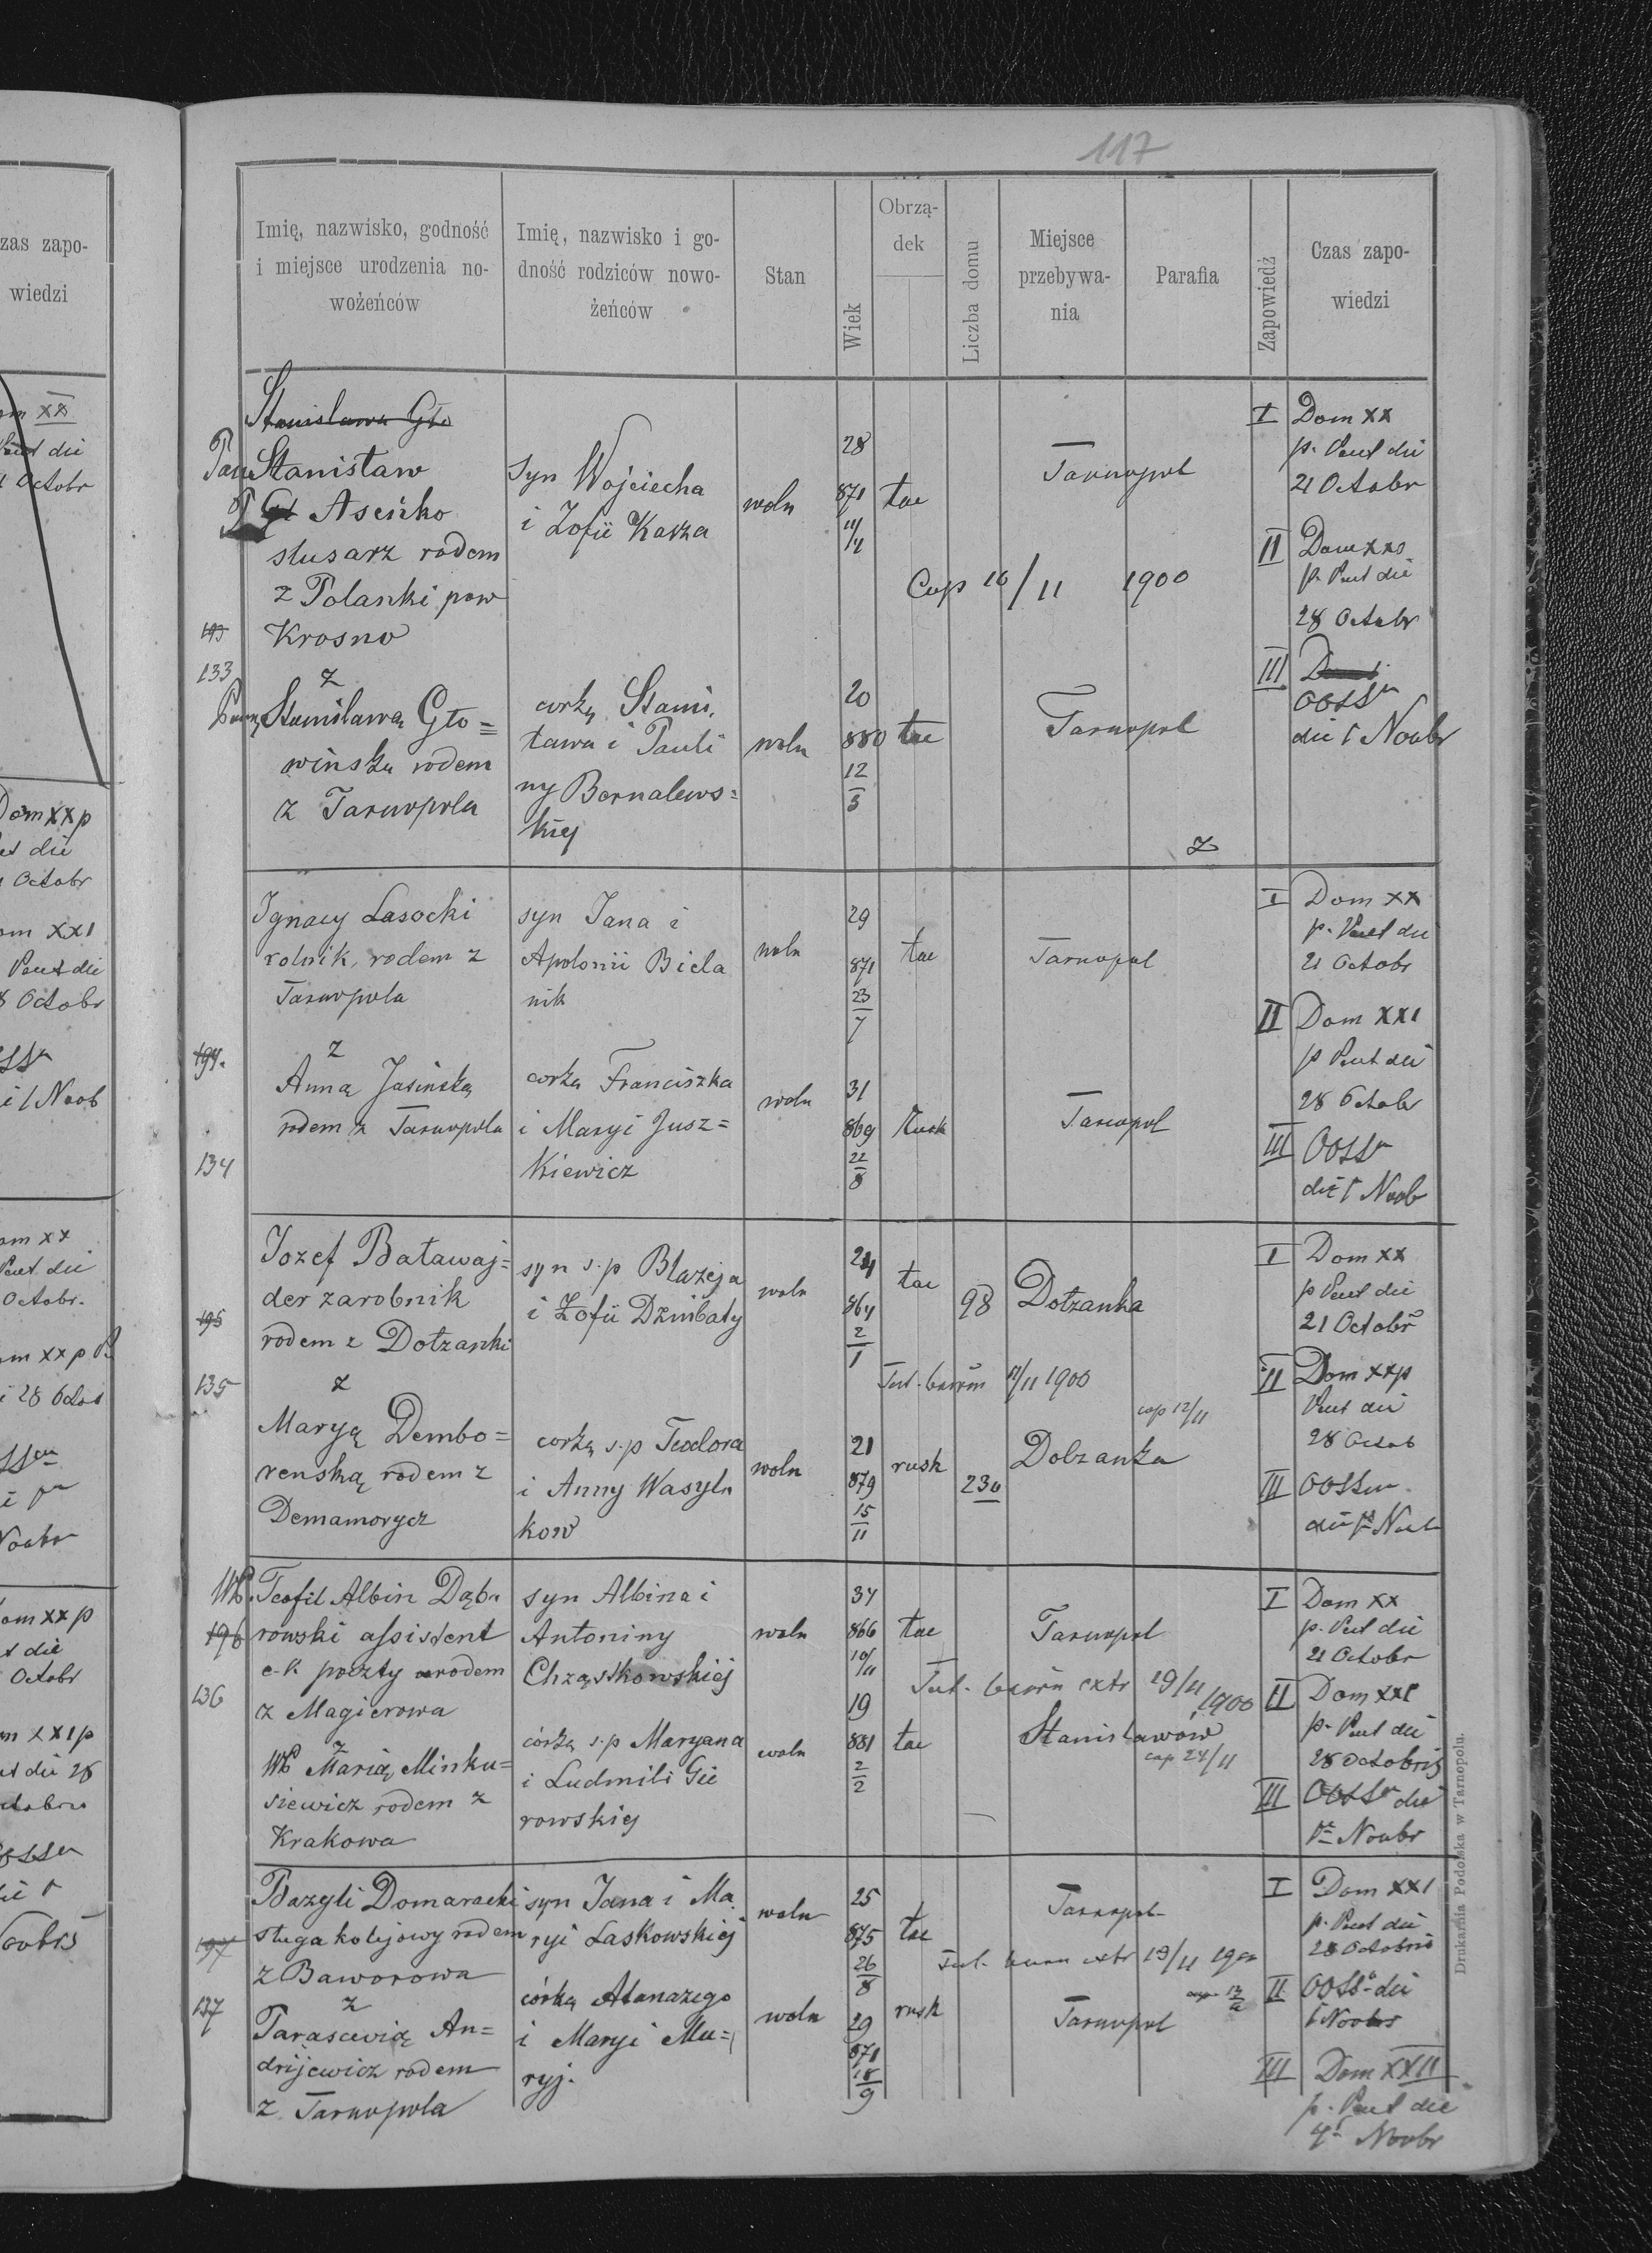 117
Imię, nazwisko, godność
i miejsce urodzenia no-
wożeńców
Imię, nazwisko i go-
dność rodziców nowo-
żeńców
Stan
Wiek
Obrzą-
dek
Liczba domu
Miejsce
przebywa-
nia
Parafia
Zapowiedź
Czas zapo-
wiedzi
Stanisława Gło
Stanisław
Asenko
slusarz rodem
z Polanki pow
Krosno
133
z
Stanisławą Gło=
wińską rodem
z Tarnopola
syn Wojciecha
i Zofii Karza
corką Stani,
ława i Pauli
ny Bernalews=
kiej
woln
woln
28
871
11/4
20
880
12
3
łac
łac
Tarnopol
Cop 10/11 1900
Tarnopol
I Dom XX
p. Pent die
21 Octobr
II Dom XXI
p. Pent die
28 Octobr
III
OOSS
die 1 Novbr
Ignacy Lasocki
rolnik, rodem z
Tarnopola
194.
z
Anną Jasińską
rodem z Tarnopola
134
syn Jana i
Apolonii Biela
nik
corką Franciszka
i Maryi Jusz=
kiewicz
woln
woln
29
871
23
7
31
869
22
8
łac
rusk
Tarnopol
Tarnopol
I Dom XX
p. Pent die
21 Octobr
II Dom XXI
p Pent die
28 Octobr
III OOSS
die 1 Novb
Jozef Batawaj=
der zarobnik
rodem z Dołzanki
195
135
z
Maryą Dembo=
renską rodem z
Demamorycz
syn s.p Blazeja
i Zofii Dzinbaty
corką s.p Teodora
i Anny Wasyln
kow
woln
woln
24
864
2
1
21
879
15
11
łac
rusk
98
230
Dołzanka
11/11 1900
cop 12/11
Dolzanka
I Dom XX
p Pent die
21 Octobr
II Dom XXI p
Pent die
28 Octob
III OOSS
Teofil Albin Dąb=
rowski assistent
c-k poczty rodem
z Magierowa
196
136
z
Marią Minku=
siewicz rodem z
Krakowa
syn Albina i
Antoniny
Chrząstkowskiej
córką s.p Maryana
i Ludmili Gie
rowskiej
woln
woln
34
866
10/11
19
881
2
2
łac
łac
Tarnopol
extr 19/11 1900
Stanisławów
cop 24/11
I Dom XX
p. Pent die
21 Octobr
II Dom XXI
p. Pent die
28 Octobris
III OOSS die
1 Novbr
Bazyli Domaracki
sługa kolejowy rodem
z Baworowa
197
137
z
Parascevią An=
drijewicz rodem
z Tarnopola
syn Jana i Ma
ryi Laskowskiej
córką Atanazego
i Maryi Mu=
ryj.
woln
woln
25
875
26
8
29
871
18
9
łac
rusk
Tarnopol
extr 13/11 1900
Tarnopol
I Dom XXI
p. Pent die
28 Octobris
II OOSS die
1 Novbr
III Dom XXII
p. Pent die
4 Novbr
Drukarnia Podolska w Tarnopolu.